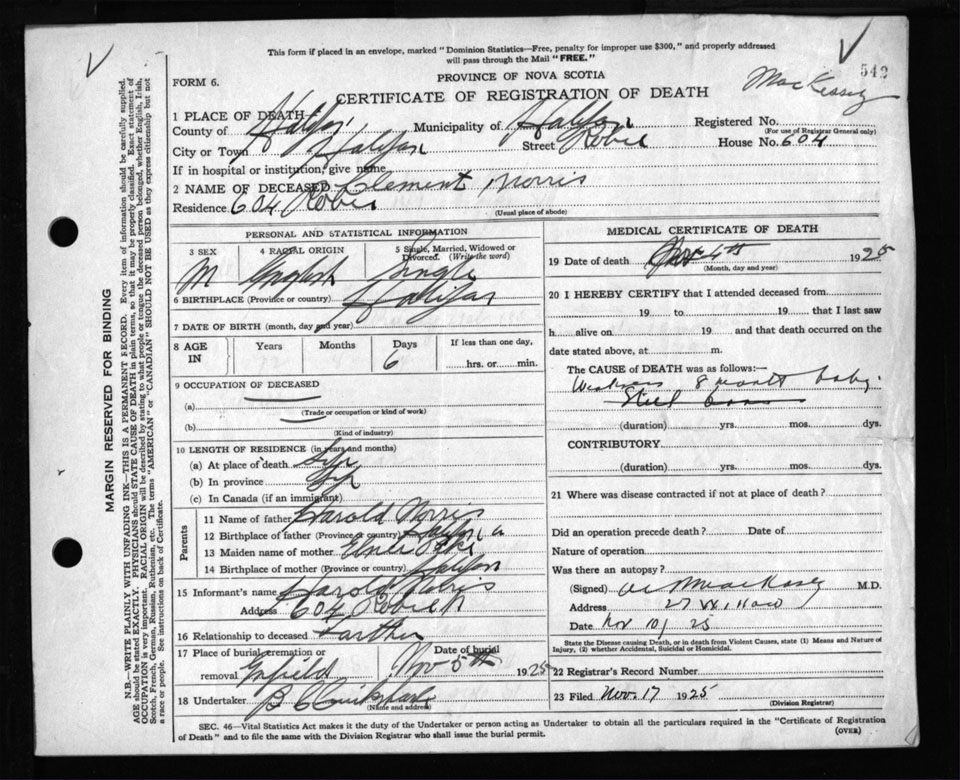 This form if placed in an envelope, marked "Dominion Statistics—Free, penalty for improper use $300," and properly addressed
will pass through the Mail "FREE."
FORM 6.
PROVINCE OF NOVA SCOTIA
MacKassey
542
CERTIFICATE OF REGISTRATION OF DEATH
1 PLACE OF DEATH
County of Halifax Municipality of Halifax Registered No.
(For use of Registrar General only)
City or Town Halifax Street Robie House No. 604
If in hospital or institution, give name
2 NAME OF DECEASED Clement Norris
Residence 604 Robie
(Usual place of abode)
PERSONAL AND STATISTICAL INFORMATION
3 SEX 4 RACIAL ORIGIN 5 Single, Married, Widowed or
Divorced. (Write the word)
M English Single
6 BIRTHPLACE (Province or country) Halifax
7 DATE OF BIRTH (month, day and year)
8 AGE IN Years Months Days If less than one day,
6 hrs. or min.
9 OCCUPATION OF DECEASED
(a)
(Trade or occupation or kind of work)
(b)
(Kind of industry)
10 LENGTH OF RESIDENCE (in years and months)
(a) At place of death Life
(b) In province Life
(c) In Canada (if an immigrant)
Parents
11 Name of father Harold Norris
12 Birthplace of father (Province or country) Halifax
13 Maiden name of mother
14 Birthplace of mother (Province or country) Halifax
15 Informant's name Harold Norris
Address 604 Robie
16 Relationship to deceased Farther
17 Place of burial, cremation or Date of burial
removal Enfield Nov 5th 1925
18 Undertaker
(Name and address)
MEDICAL CERTIFICATE OF DEATH
19 Date of death Nov 4th 1925
(Month, day and year)
20 I HEREBY CERTIFY that I attended deceased from
19 to 19 that I last saw
h alive on 19 and that death occurred on the
date stated above, at m.
The CAUSE of DEATH was as follows:—
Weakness 8 month baby.
Still born
(duration) yrs. mos. dys.
CONTRIBUTORY
(duration) yrs. mos. dys.
21 Where was disease contracted if not at place of death?
Did an operation precede death? Date of
Nature of operation
Was there an autopsy?
(Signed) MacKassey M.D.
Address 27
Date Nov 10/25
State the Disease causing Death, or in death from Violent Causes, state (1) Means and Nature of
Injury, (2) whether Accidental, Suicidal or Homicidal.
22 Registrar's Record Number
23 Filed Nov. 17 1925
(Division Registrar)
SEC. 46—Vital Statistics Act makes it the duty of the Undertaker or person acting as Undertaker to obtain all the particulars required in the "Certificate of Registration
of Death" and to file the same with the Division Registrar who shall issue the burial permit.
(OVER)
MARGIN RESERVED FOR BINDING
N.B.—WRITE PLAINLY WITH UNFADING INK—THIS IS A PERMANENT RECORD. Every item of information should be carefully supplied.
AGE should be stated EXACTLY. PHYSICIANS should STATE CAUSE OF DEATH in plain terms, so that it may be properly classified. Exact statement of
OCCUPATION is very important. RACIAL ORIGIN will be described by stating to what people or tongue the deceased person belonged, whether English, Irish,
Scotch, French, German, Russian, Ruthenian, etc. The terms "AMERICAN" or "CANADIAN" SHOULD NOT BE USED as they express citizenship but not
a race or people. See instructions on back of Certificate.